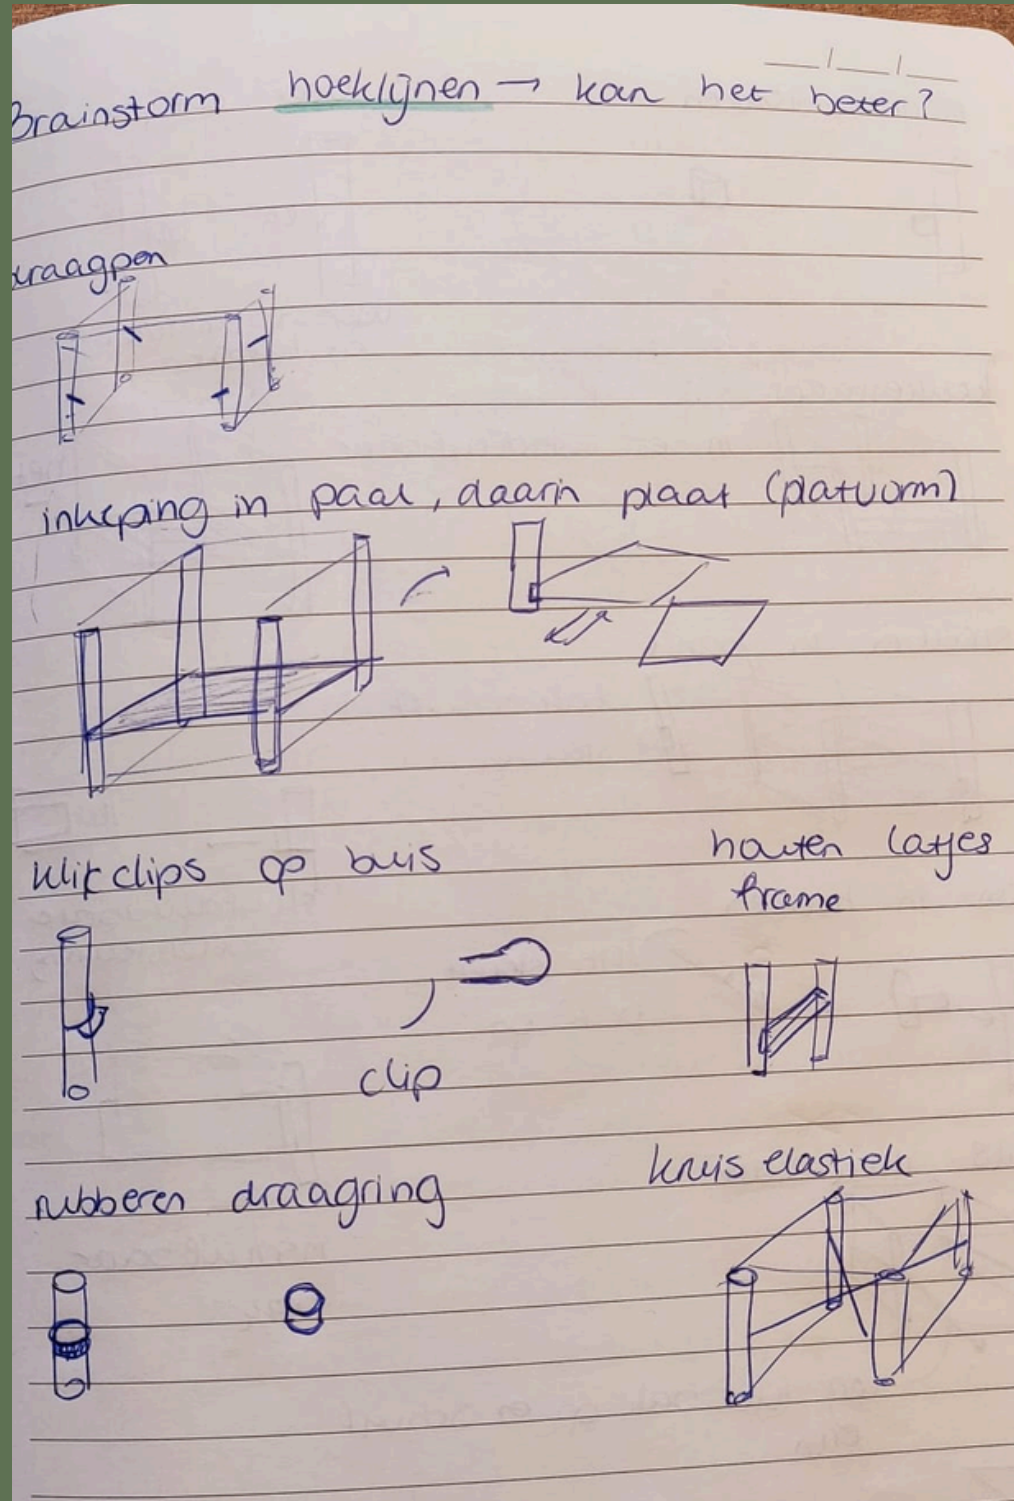 Brainstorm hoeklijnen → kan het beter?
draagpen
inkeping in paal, daarin plaat (platvorm)
klik clips op buis
houten latjes
frame
clip
rubberen draagring
kruis elastiek